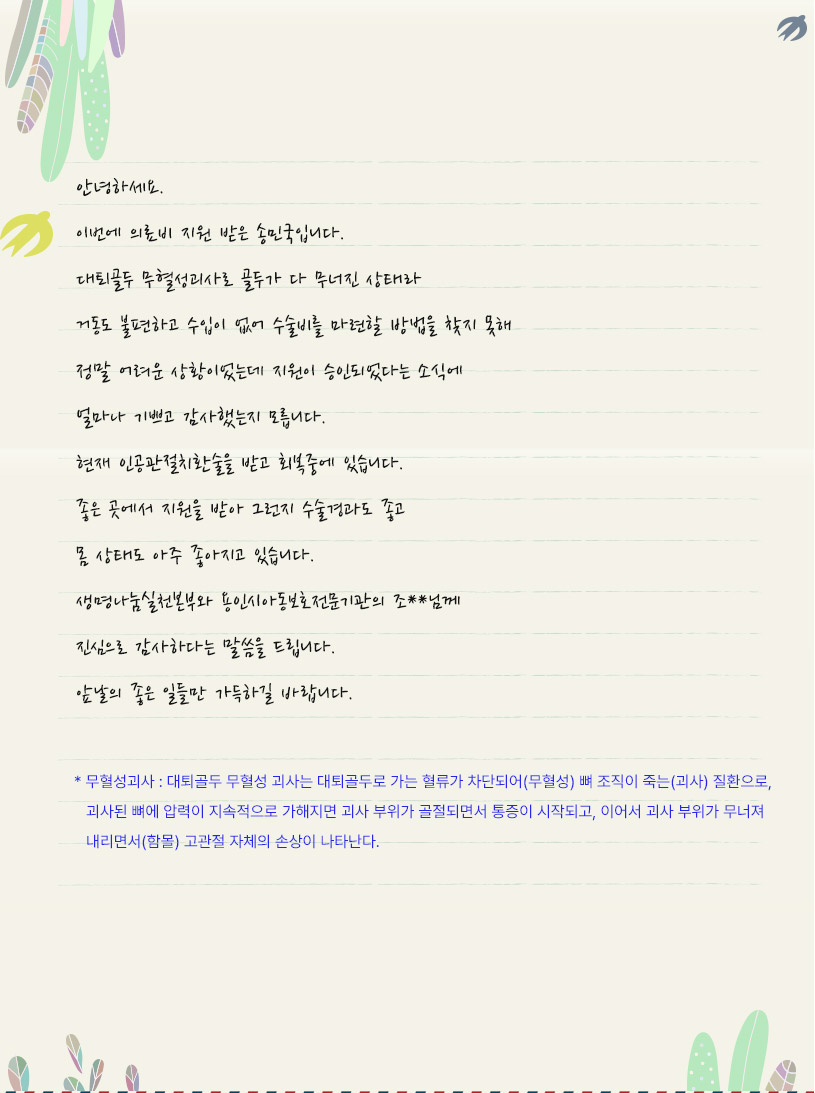 안녕하세요.
이번에 의료비 지원 받은 송민국입니다.
대퇴골두 무혈성괴사로 골두가 다 무너진 상태라
거동도 불편하고 수입이 없어 수술비를 마련할 방법을 찾지 못해
정말 어려운 상황이었는데 지원이 승인되었다는 소식에
얼마나 기쁘고 감사했는지 모릅니다.
현재 인공관절치환술을 받고 회복중에 있습니다.
좋은 곳에서 지원을 받아 그런지 수술경과도 좋고
몸 상태도 아주 좋아지고 있습니다.
생명나눔실천본부와 용인시아동보호전문기관의 조**님께
진심으로 감사하다는 말씀을 드립니다.
앞날의 좋은 일들만 가득하길 바랍니다.
* 무혈성괴사 : 대퇴골두 무혈성 괴사는 대퇴골두로 가는 혈류가 차단되어(무혈성) 뼈 조직이 죽는(괴사) 질환으로,
괴사된 뼈에 압력이 지속적으로 가해지면 괴사 부위가 골절되면서 통증이 시작되고, 이어서 괴사 부위가 무너져
내리면서(함몰) 고관절 자체의 손상이 나타난다.